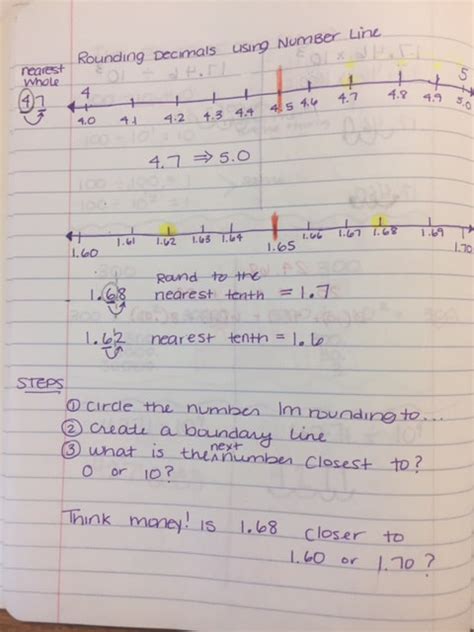 Rounding Decimals using Number Line
nearest
whole
4.7
4 5
4.0 4.1 4.2 4.3 4.4 4.5 4.6 4.7 4.8 4.9 5.0
4.7 ⇒ 5.0
1.60 1.61 1.62 1.63 1.64 1.65 1.66 1.67 1.68 1.69 1.70
Round to the
1.68 nearest tenth = 1.7
1.62 nearest tenth = 1.6
STEPS
① circle the number Im rounding to...
② create a boundary line
③ what is the next number closest to?
0 or 10?
Think money! is 1.68 closer to
1.60 or 1.70?